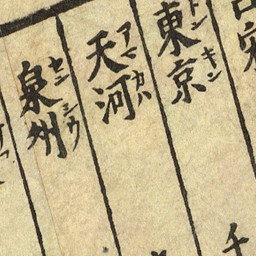 東京
トンキン
天河
アマカハ
泉州
センシウ
チ